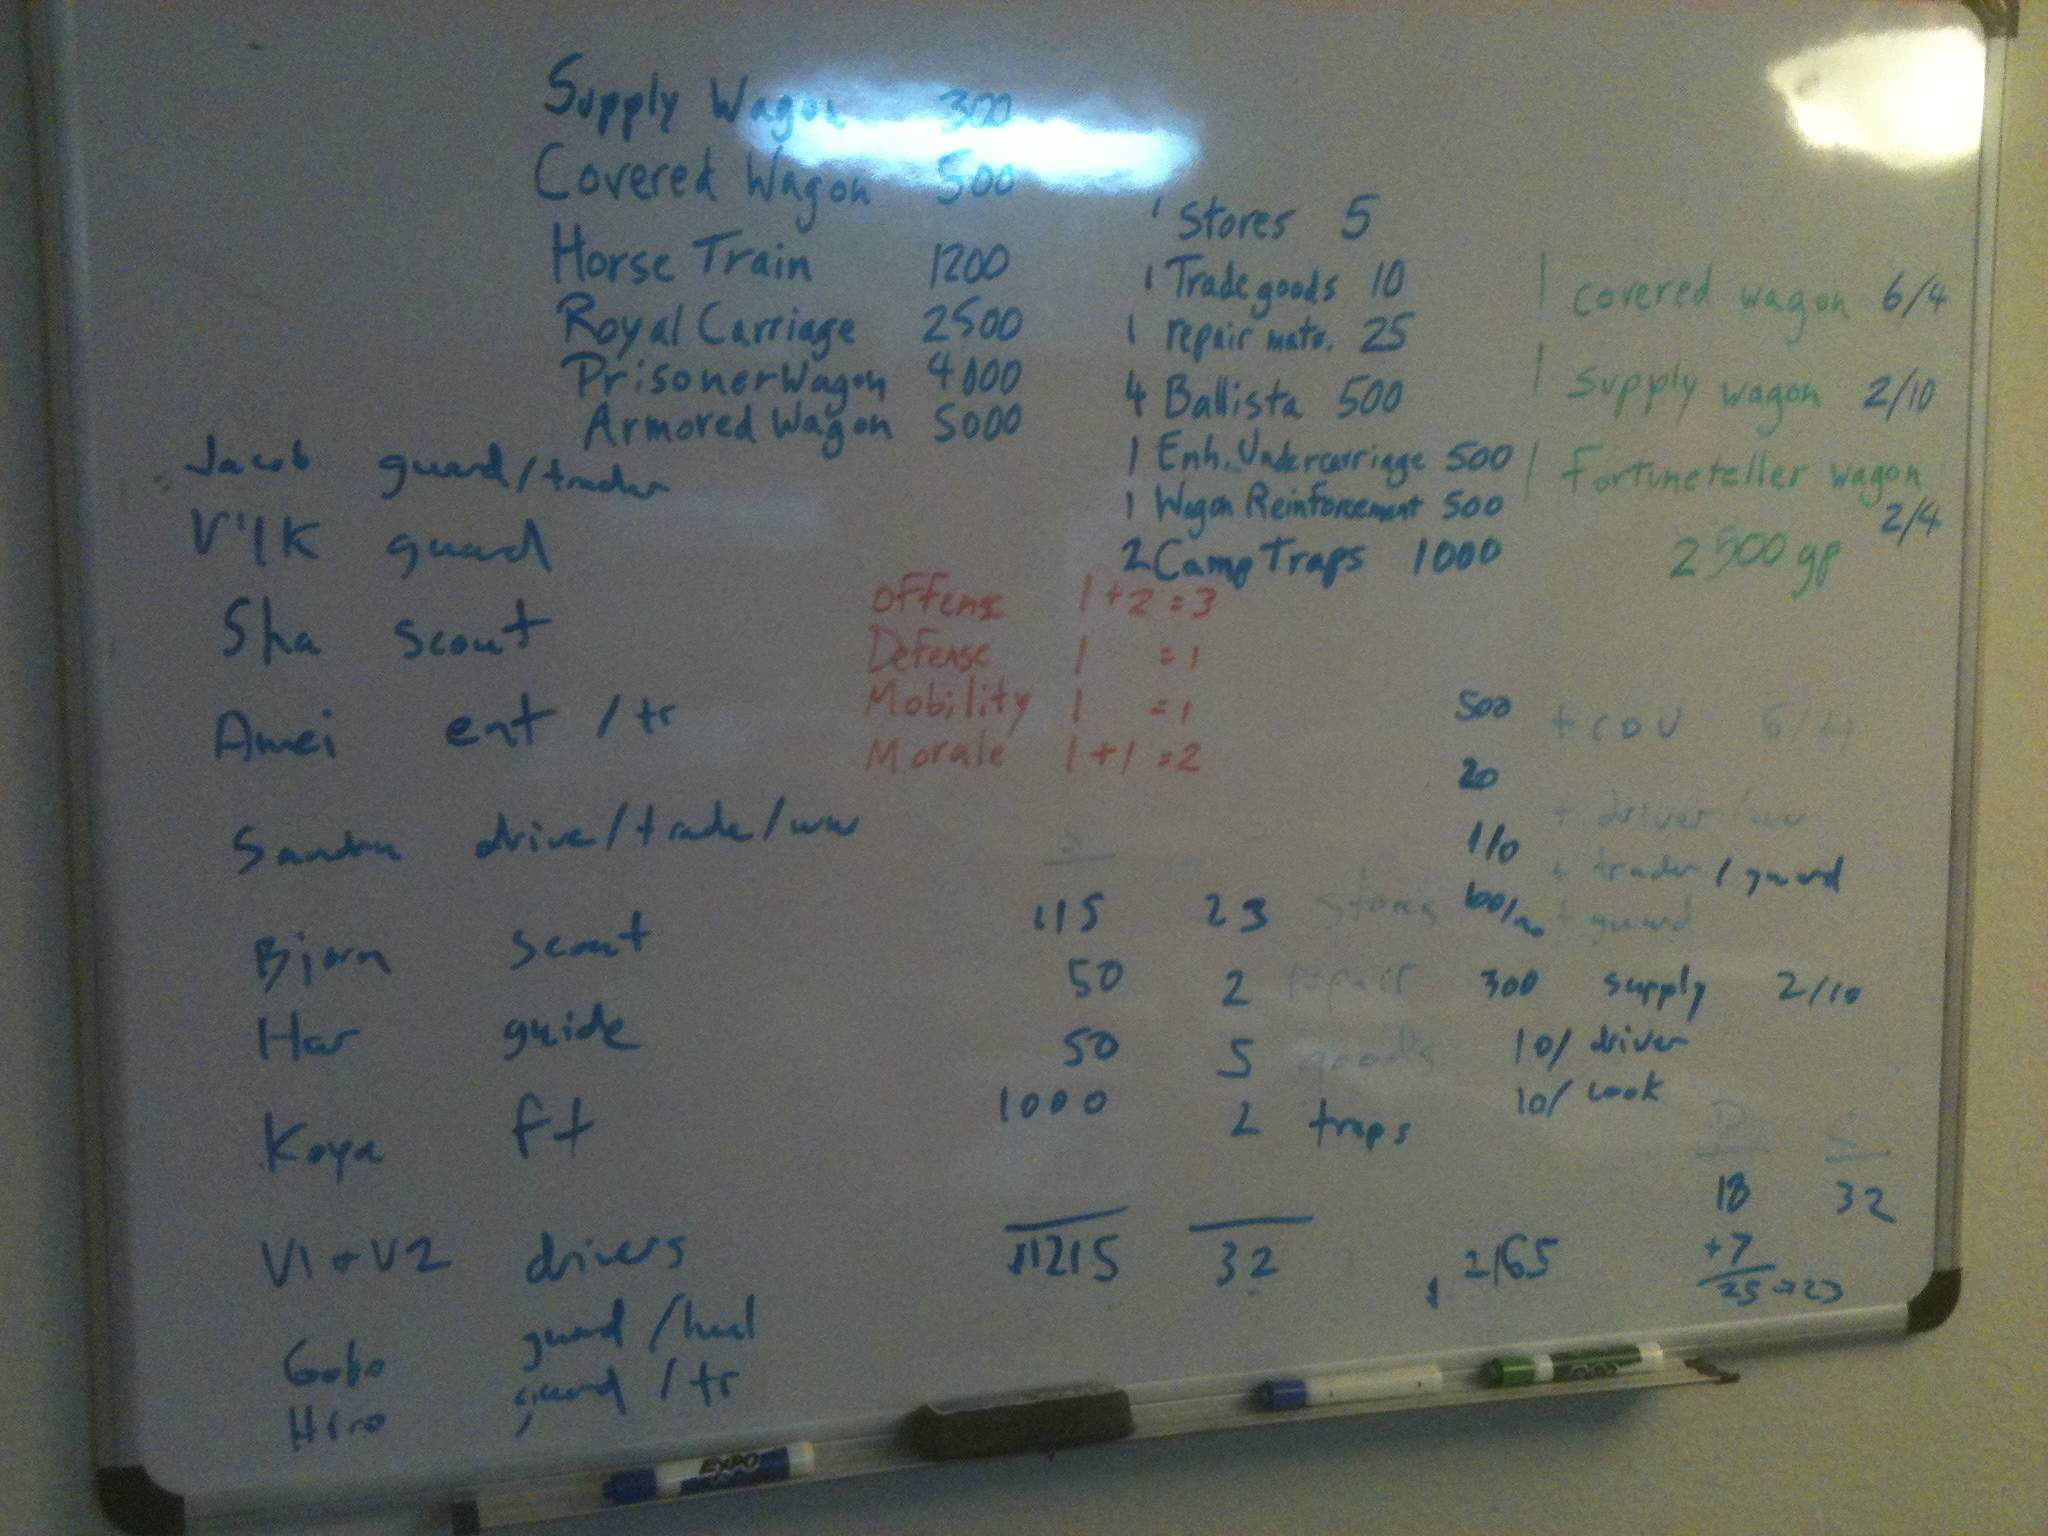 Supply Wagon 300
Covered Wagon 500
Horse Train 1200
Royal Carriage 2500
Prisoner Wagon 4000
Armored Wagon 5000
1 Stores 5
1 Trade goods 10
1 repair mats. 25
4 Ballista 500
1 Enh. Undercarriage 500
1 Wagon Reinforcement 500
2 Camp Traps 1000
1 covered wagon 6/4
1 supply wagon 2/10
1 Fortuneteller wagon
2/4
2500 gp
Jacob guard/trader
V'lk guard
Sha scout
Amei ent / tr
Sandru drive/trade/ww
Bjorn scout
Har guide
Koya ft
V1 + V2 drivers
Gobo guard /heal
Hiro guard / tr
offense 1 + 2 = 3
Defense 1 = 1
Mobility 1 = 1
Morale 1 + 1 = 2
115 23 stores
50 2 repair
50 5 goods
1000 2 traps
1215 32
500 + cov 6/4
20 + driver/ww
110 + trader / guard
100/ + guard
300 supply 2/10
10/ driver
10/ cook
2165
P S
18 32
+7
25 → 23
EXPO